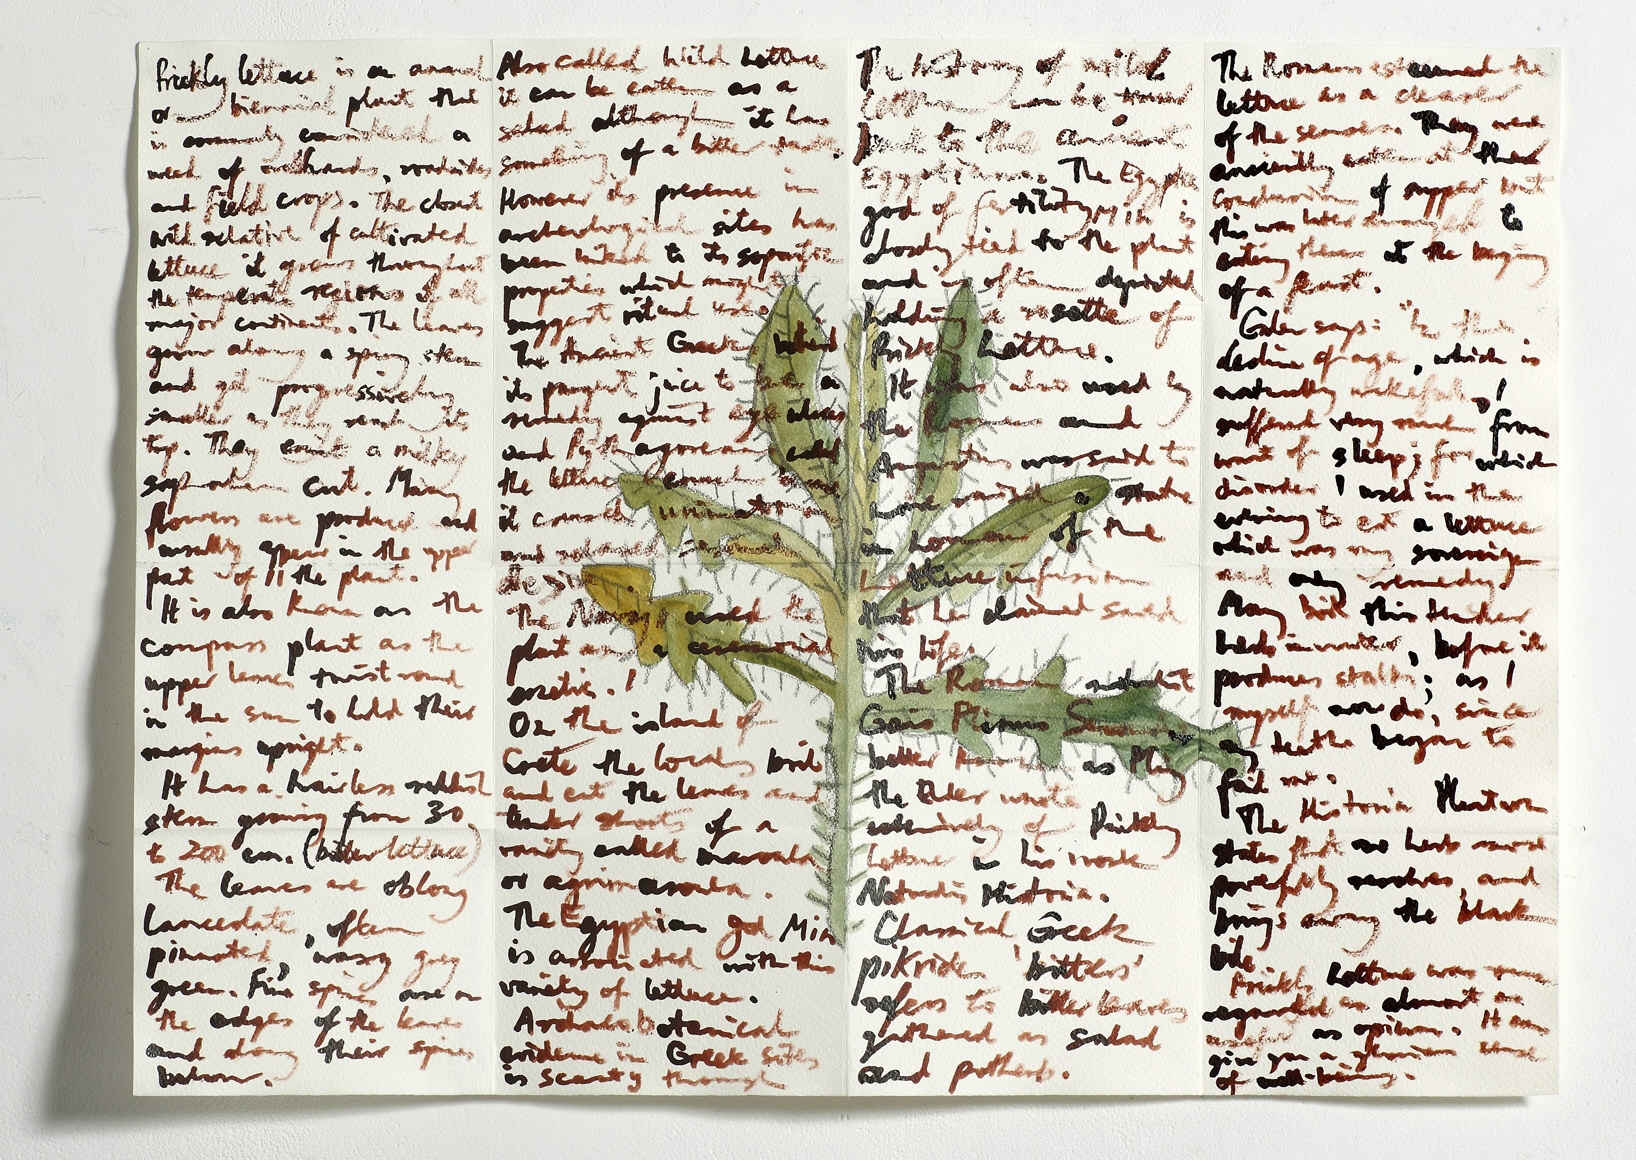 Prickly lettuce is an annual
or biennial plant that
is commonly considered a
weed of orchards, roadsides
and field crops. The closest
wild relative of cultivated
lettuce it grows throughout
the temperate regions of all
major continents. The leaves
grow along a spiny stem
and get progressively
smaller as they reach its
top. They emit a milky
sap when cut. Many
flowers are produced and
usually appear in the upper
part of the plant.
It is also known as the
compass plant as the
upper leaves twist round
in the sun to hold their
margins upright.
It has a hairless reddish
stem growing from 30
to 200 cm. (bitter lettuce)
The leaves are oblong
lanceolate, often
pinnated, waxy grey
green. Fine spines are on
the edges of the leaves
and along their spines
below.
Also called Wild Lettuce
it can be eaten as a
salad although it has
something of a bitter taste.
However its presence in
archeological sites has
been linked to its soporific
properties which might
suggest ritual use.
The Ancient Greeks
its pungent juice to be a
remedy against eye ulcers
and Pythagoreans called
the lettuce eunuch
it caused urination
and relaxed
desire
The Navajo used the
plant as a ceremonial
emetic.
On the island of
Crete the locals boil
and eat the leaves and
tender shoots of a
variety called maroula
or agriomaroula.
The Egyptian god Min
is associated with this
variety of lettuce.
Archaeobotanical
evidence in Greek sites
is scanty through
The history of wild
lettuce can be traced
back to the ancient
Egyptians. The Egyptian
god of fertility MIN is
closely tied to the plant
and is often depicted
holding a rosette of
Prickly Lettuce.
It was also used by
the Romans and
Augustus was said to
have raised a statue
in honour of the
Lettuce infusion
that he claimed saved
his life.
The Roman naturalist
Gaius Plinius Secundus
better known as Pliny
the Elder wrote
extensively of Prickly
Lettuce in his work
Naturalis Historia.
Classical Greek
pikrides 'bitters'
refers to bitter leaves
gathered as salad
and potherbs.
The Romans esteemed the
lettuce as a cleaser
of the senses. They were
anciently eaten at the
conclusion of supper but
this was later changed to
eating them at the begining
of a feast.
Galen says: "In the
decline of age, which is
naturally wakeful, I
suffered very much from
want of sleep; for which
disorder I used in the
evening to eat a lettuce
which was my sovereign
and only remedy
Many boil this tender
herb in water, before it
produces stalks; as I
myself now do, since
my teeth began to
fail me.
The Historia Plantarum
states that no herb more
powerfully resolves, and
brings away the black
bile
Prickly Lettuce was once
regarded as almost as
useful as opium. It can
give you a glorious sense
of well-being.